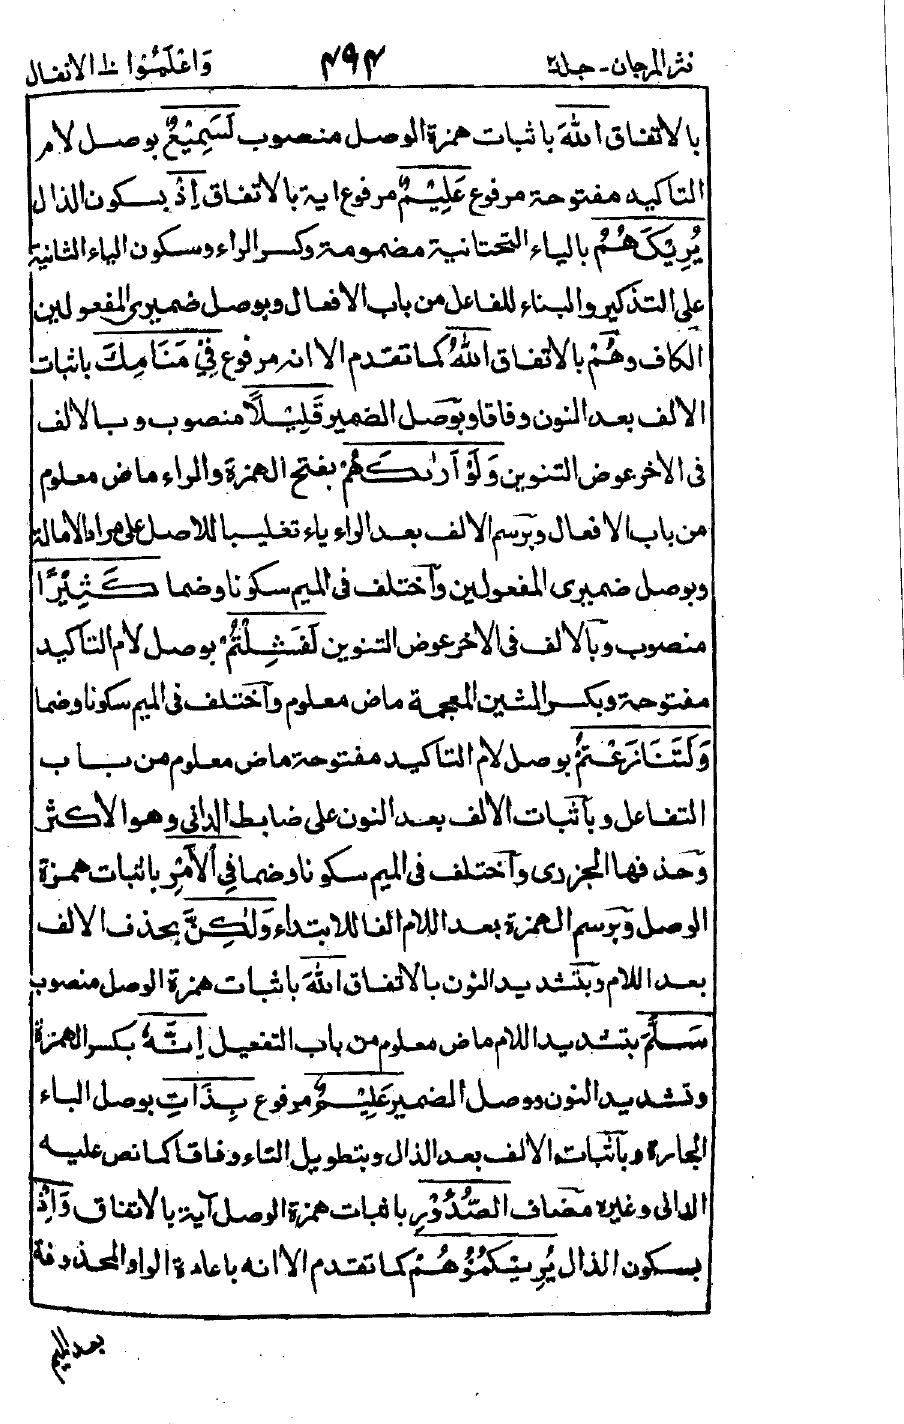 نثر المرجان - جلد ٢ ٤٩٤ وَاعْلَمُوْا ١٠ الانفال
بالاتفاق اللّٰهَ باثبات همزة الوصل منصوب لَسَمِيْعٌ بوصل لام
التاكيد مفتوحة مرفوع عَلِيْمٌ مرفوع اية بالاتفاق اِذْ بسكون الذال
يُرِيْكَهُمُ بالياء التحتانية مضمومة وكسر الراء وسكون الياء الثانية
على التذكير والبناء للفاعل من باب الافعال وبوصل ضميرى المفعولين
الكاف وهُمْ بالاتفاق اللّٰهُ كما تقدم الا انه مرفوع فِيْ مَنَامِكَ باثبات
الالف بعد النون وفاقا وبوصل الضمير قَلِيْلًا منصوب وبالالف
فى الاخر عوض التنوين وَلَوْ اَرٰىكَهُمْ بفتح الهمزة والراء ماض معلوم
من باب الافعال وبرسم الالف بعد الراء ياء تغليبا للاصل على مراد الامالة
وبوصل ضميرى المفعولين واختلف فى الميم سكونا وضما كَثِيْرًا
منصوب وبالالف فى الاخر عوض التنوين لَفَشِلْتُمْ بوصل لام التاكيد
مفتوحة وبكسر الشين المعجمة ماض معلوم واختلف فى الميم سكونا وضما
وَلَتَنَازَعْتُمْ بوصل لام التاكيد مفتوحة ماض معلوم من باب
التفاعل وباثبات الالف بعد النون على ضابط الدانى وهو الاكثر
وحذفها الجزرى واختلف فى الميم سكونا وضما فِى الْاَمْرِ باثبات همزة
الوصل وبرسم الهمزة بعد اللام الفا للابتداء وَلٰكِنَّ بحذف الالف
بعد اللام وبتشديد النون بالاتفاق اللّٰهَ باثبات همزة الوصل منصوب
سَلَّمَ بتشديد اللام ماض معلوم من باب التفعيل اِنَّهٗ بكسر الهمزة
وتشديد النون ووصل الضمير عَلِيْمٌ مرفوع بِذَاتِ بوصل الباء
الجارة وباثبات الالف بعد الذال وبتطويل التاء وفاقا كما نص عليه
الدانى وغيره مضاف الصُّدُوْرِ باثبات همزة الوصل آية بالاتفاق وَاِذْ
بسكون الذال يُرِيْكُمُوْهُمْ كما تقدم الا انه باعادة الواو المحذوفة
بعد الميم